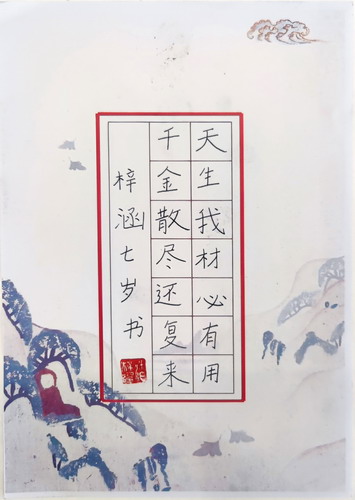 天生我材必有用
千金散尽还复来
梓涵七岁书